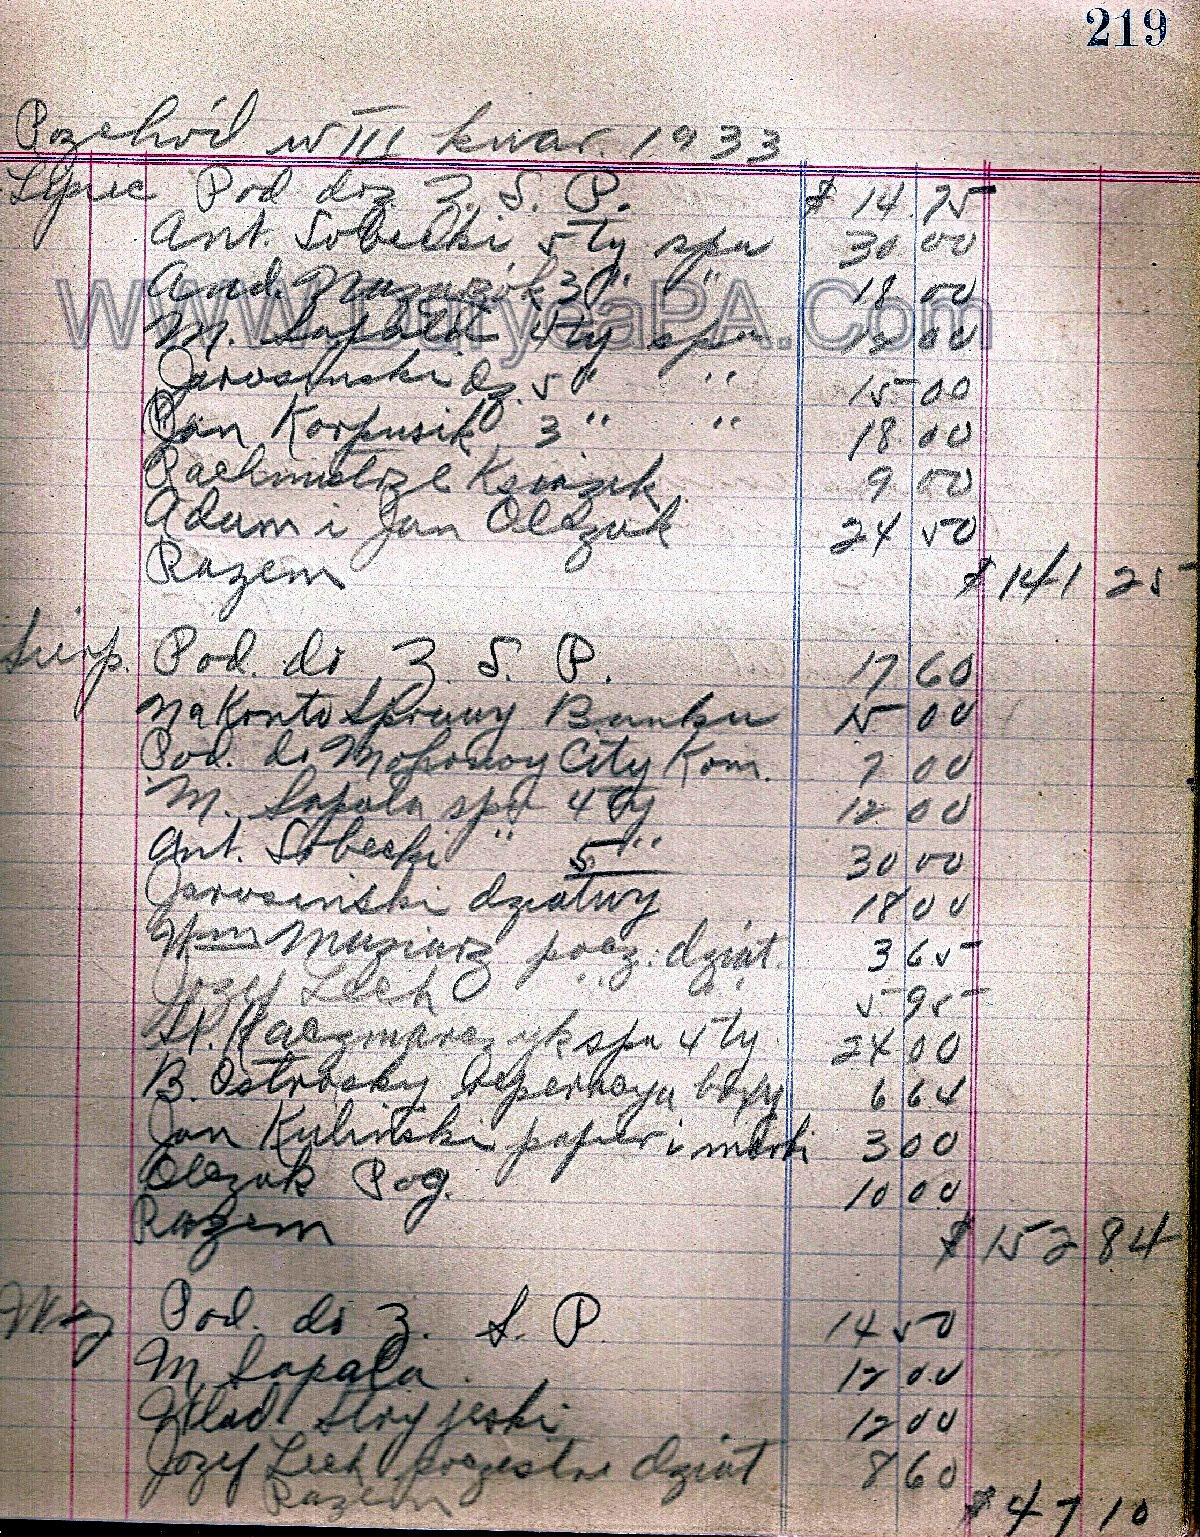 219
Rozchód w III kwar. 1933
Lipiec Pod. do Z. S. P. $ 14.75
Ant. Sobecki 5ty spu 30 00
And. Mazurók 3 " " 18 00
M. Sapala 4ty spu 12 00
Jarosinski dz. 5 " " 15 00
Jan Korpusik 3 " " 18 00
Ksiazek 9 50
Adam i Jan Olczak 24 50
Razem $ 141 25
Sierp. Pod. do Z. S. P. 17 60
Na Konto Sprawy Banku 15 00
Pod. do Mohonoy City Kom. 7 00
M. Sapala spu 4ty 12 00
Ant. Sobecki " 5 " 30 00
Jarosinski dziatwy 18 00
Wm Muziarz pocz. dziat. 3 65
Jozef Lech " " 5 95
St. Kaczmarczyk spu 4ty 24 00
B. Ostrosky 6 64
Jan Kulinski papier i marki 3 00
Olczak Pog. 10 00
Razem $ 152 84
Wrz Pod. do Z. S. P. 14 50
M Sapala 12 00
Wlad. Stryjeski 12 00
Jozef Lech poczestne dziat 8 60
Razem $ 47 10
www.DuryeaPA.Com